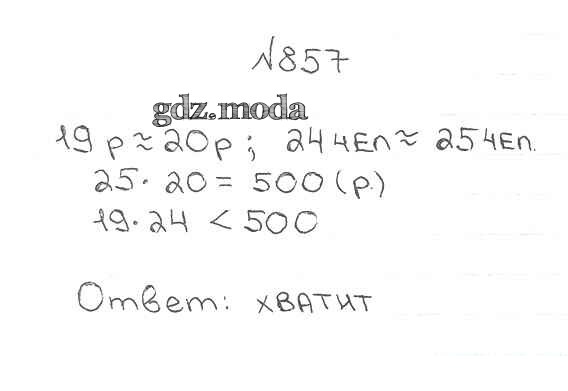 №857
gdz.moda
19 р ≈ 20р ; 24 чел ≈ 25 чел.
25 · 20 = 500 (р.)
19 · 24 < 500
Ответ: хватит